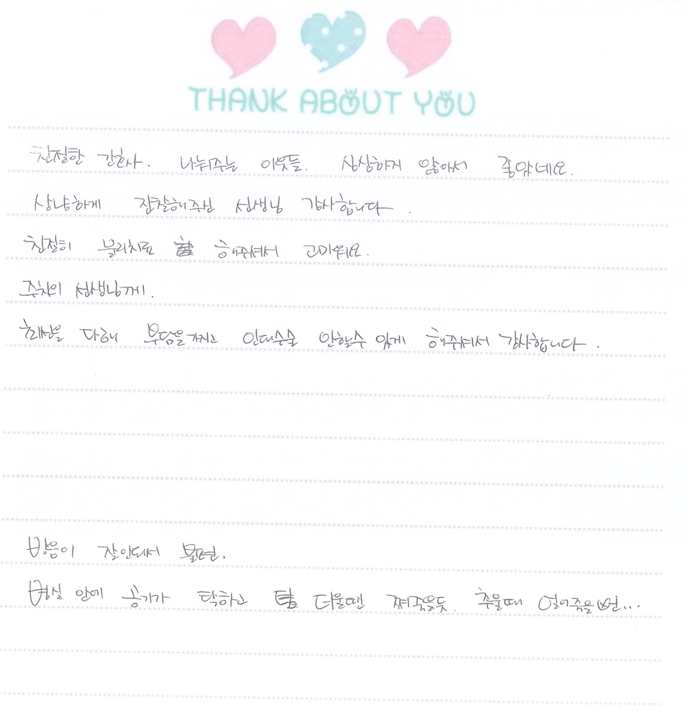 THANK ABOUT YOU
친절한 간호사. 나눠주는 이웃들. 심심하지 않아서 좋았네요.
상냥하게 진찰해주신 선생님 감사합니다.
친절히 물리치료 해주셔서 고마워요.
주치의 선생님께.
최선을 다해 부담을가지고 인대수술 안할수 있게 해주셔서 감사합니다.
방음이 잘안되서 불편.
병실 안에 공기가 탁하고 더울땐 쪄죽을듯. 추울때 얼어죽을뻔...